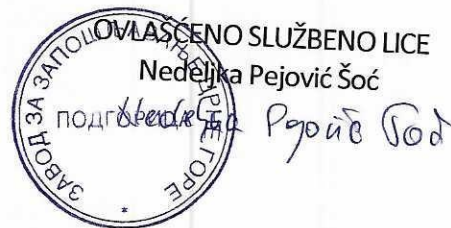 OVLAŠĆENO SLUŽBENO LICE
Nedeljka Pejović Šoć
ЗАВОД ЗА ЗАПОШЉАВАЊЕ ЦРНЕ ГОРЕ
ПОДГОРИЦА